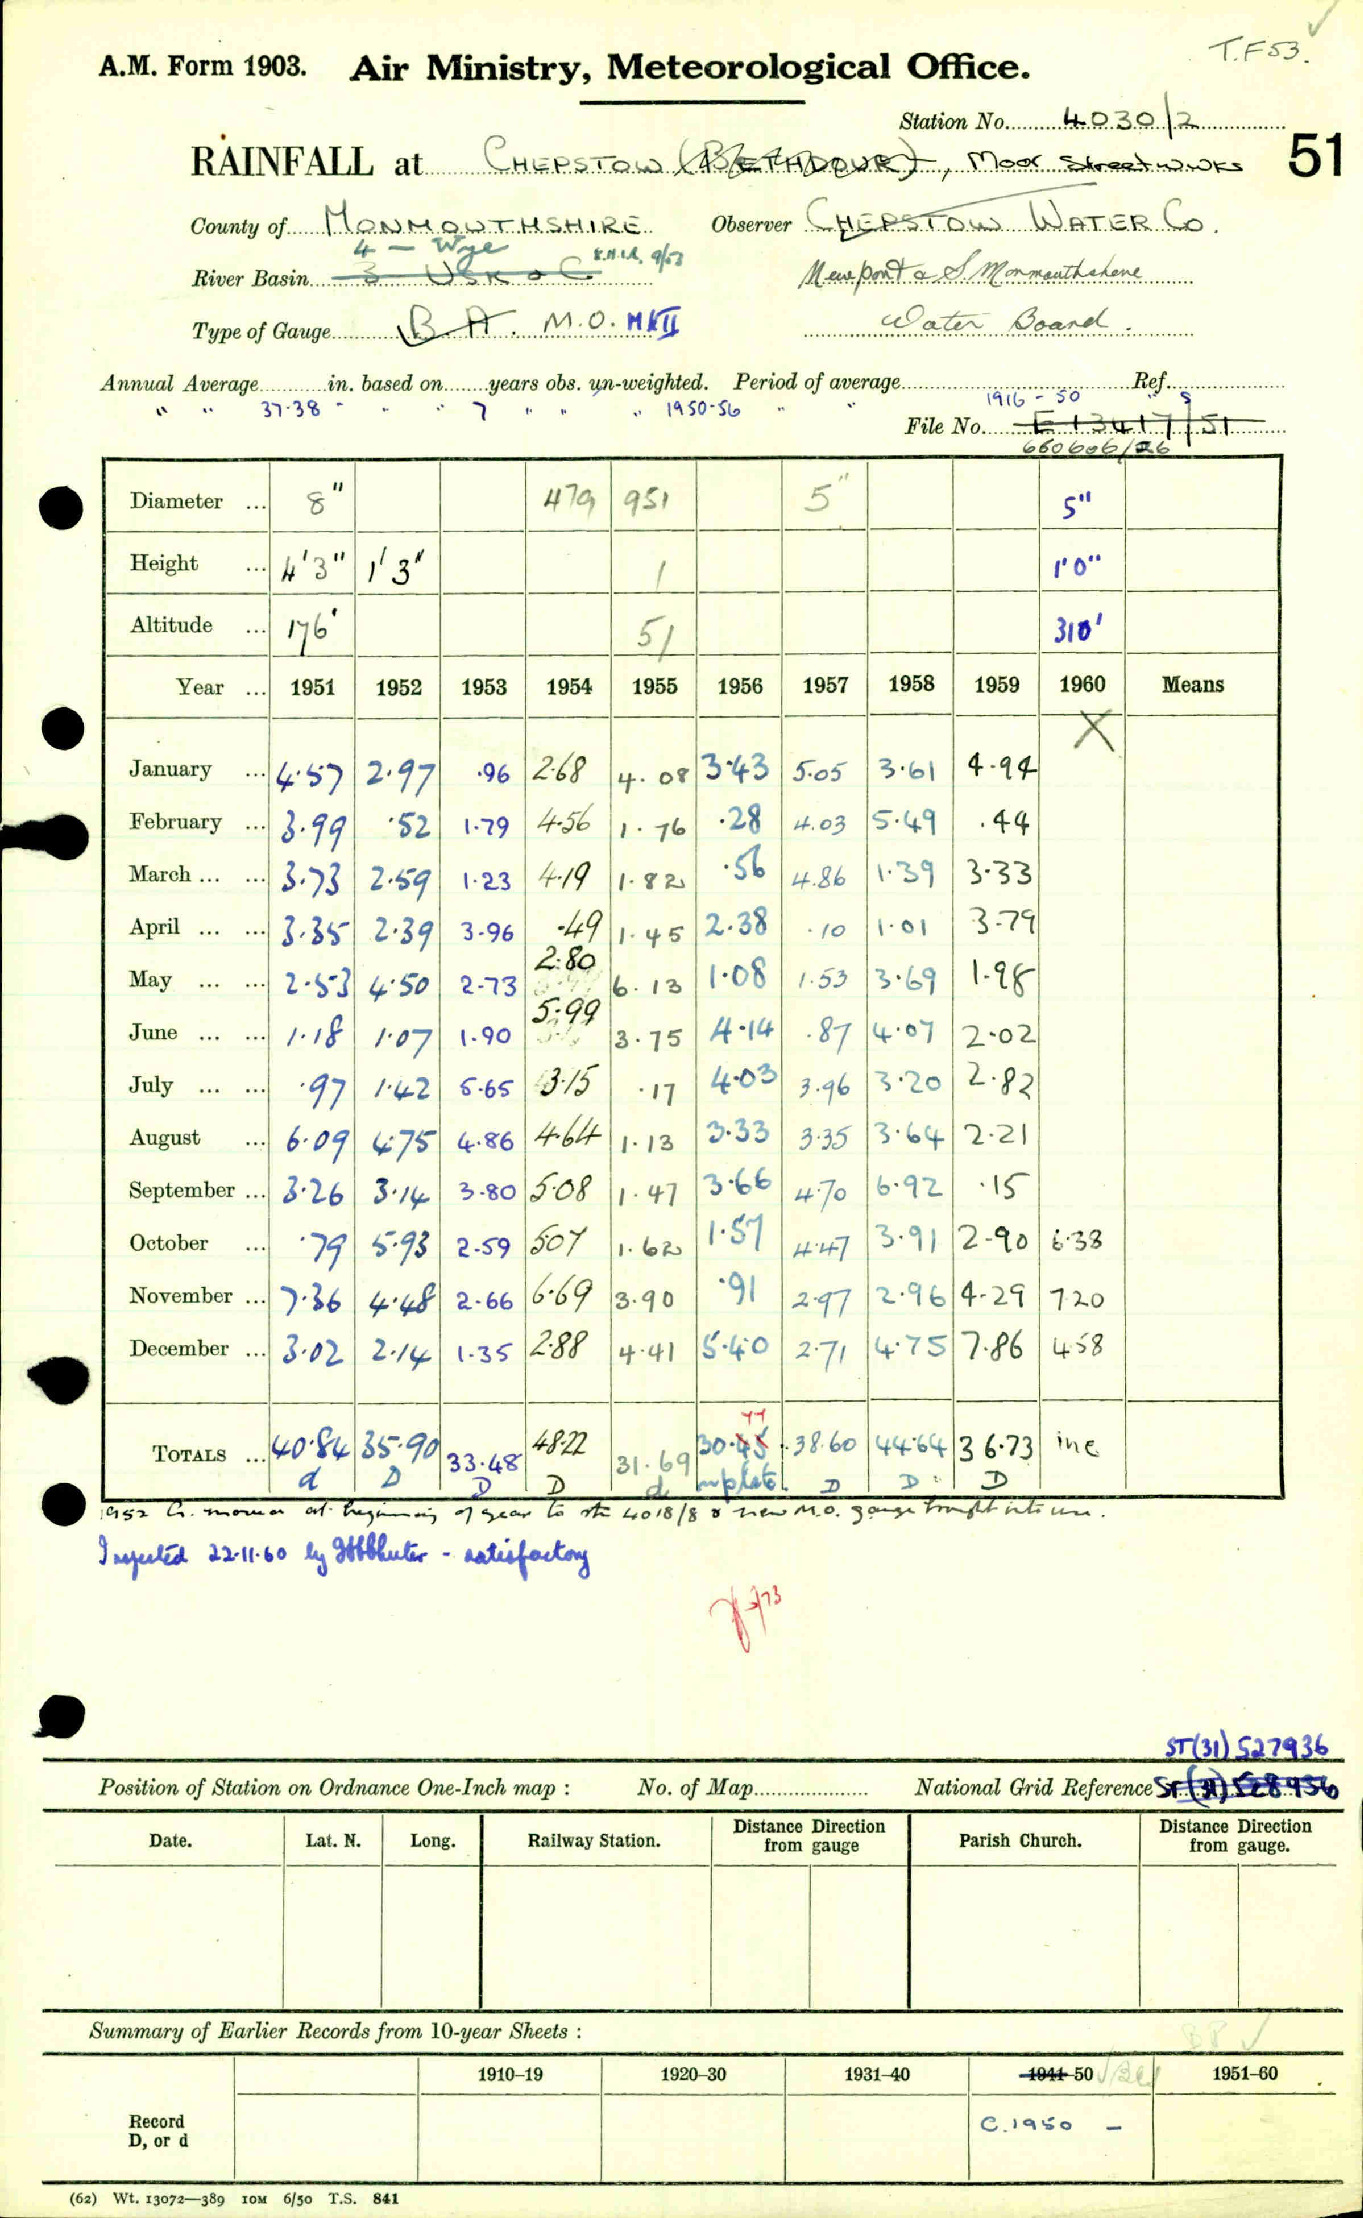 T.F53.
A.M. Form 1903. Air Ministry, Meteorological Office.
Station No. 4030/2
51
RAINFALL at CHEPSTOW (BETHDOUR), Moor Street WWKS
County of MONMOUTHSHIRE Observer CHEPSTOW WATER CO.
4 - Wye 9/53
River Basin 3 USK & C Newport & S. Monmouthshire
Type of Gauge B.A. M.O. MKII Water Board.
Annual Average in. based on years obs. un-weighted. Period of average Ref.
" " 37.38 " " " 7 " " " 1950-56 " " 1916-50 " S
File No. E13417/51
660606/26
Diameter ... 8" 479 951 5" 5"
Height ... 4'3" 1'3" 1 1'0"
Altitude ... 176' 51 310'
Year ... 1951 1952 1953 1954 1955 1956 1957 1958 1959 1960 Means
X
January ... 4.57 2.97 .96 2.68 4.08 3.43 5.05 3.61 4.94
February ... 3.99 .52 1.79 4.56 1.76 .28 4.03 5.49 .44
March ... ... 3.73 2.59 1.23 4.19 1.82 .56 4.86 1.39 3.33
April ... ... 3.35 2.39 3.96 .49 1.45 2.38 .10 1.01 3.79
May ... ... 2.53 4.50 2.73 2.80 6.13 1.08 1.53 3.69 1.98
June ... ... 1.18 1.07 1.90 5.99 3.75 4.14 .87 4.07 2.02
July ... ... .97 1.42 5.65 3.15 .17 4.03 3.96 3.20 2.82
August ... 6.09 4.75 4.86 4.64 1.13 3.33 3.35 3.64 2.21
September ... 3.26 3.14 3.80 5.08 1.47 3.66 4.70 6.92 .15
October ... .79 5.93 2.59 5.07 1.62 1.57 4.47 3.91 2.90 6.38
November ... 7.36 4.48 2.66 6.69 3.90 .91 2.97 2.96 4.29 7.20
December ... 3.02 2.14 1.35 2.88 4.41 5.40 2.71 4.75 7.86 4.58
77
TOTALS ... 40.84 35.90 33.48 48.22 31.69 30.45 38.60 44.64 36.73 inc
d D D D d D D D
1952 Gr. moved at beginning of year to stn 4018/8 & new M.O. gauge brought into use.
Inspected 22.11.60 by - satisfactory
2/73
ST(31)527936
Position of Station on Ordnance One-Inch map : No. of Map National Grid Reference ST(31)528936
Date. Lat. N. Long. Railway Station. Distance Direction from gauge Parish Church. Distance Direction from gauge.
Summary of Earlier Records from 10-year Sheets :
1910–19 1920–30 1931–40 1941–50 1951–60
Record
D, or d C.1950 -
(62) Wt. 13072—389 10M 6/50 T.S. 841